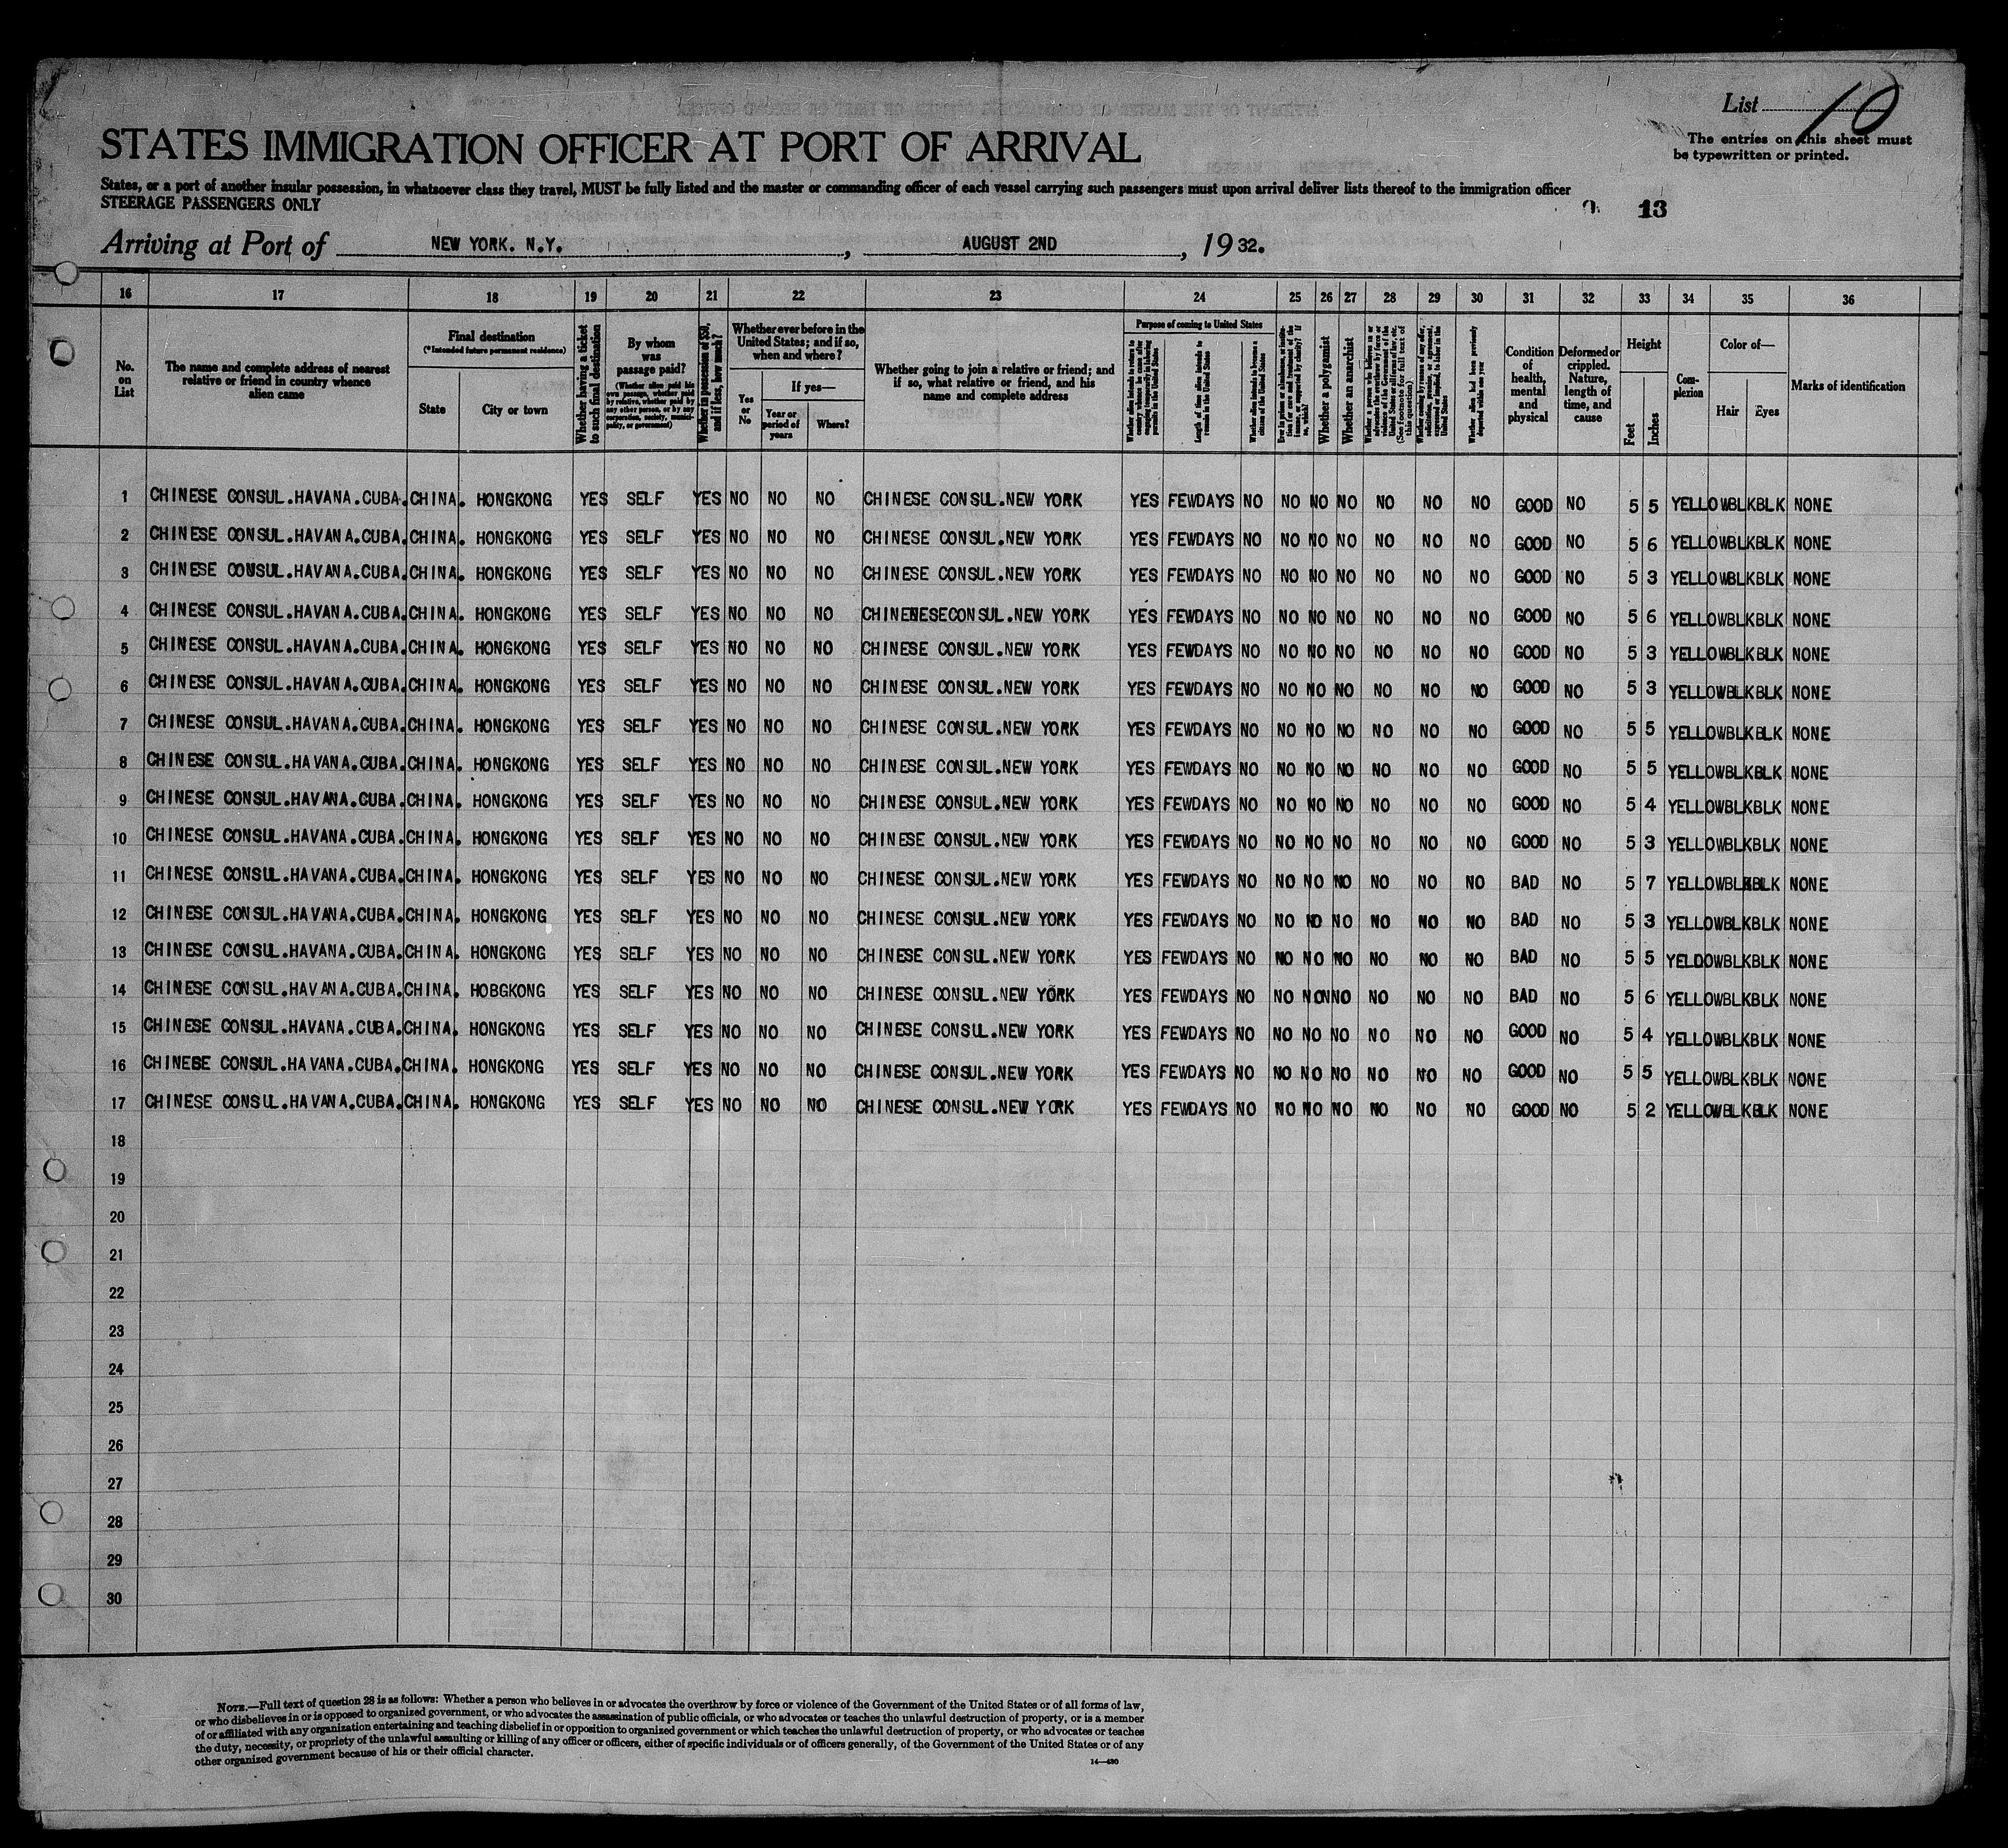 List 10
The entries on this sheet must
be typewritten or printed.
STATES IMMIGRATION OFFICER AT PORT OF ARRIVAL
States, or a port of another insular possession, in whatsoever class they travel, MUST be fully listed and the master or commanding officer of each vessel carrying such passengers must upon arrival deliver lists thereof to the immigration officer
STEERAGE PASSENGERS ONLY
13
Arriving at Port of NEW YORK. N.Y. , AUGUST 2ND , 19 32.
16 17 18 19 20 21 22 23 24 25 26 27 28 29 30 31 32 33 34 35 36
No. on List
The name and complete address of nearest relative or friend in country whence alien came
Final destination
(*Intended future permanent residence)
State
City or town
Whether having a ticket to such final destination
By whom was passage paid?
(Whether alien paid his own passage, whether paid by relative, whether paid by any other person, or by any corporation, society, municipality, or government)
Whether in possession of $50, and if less, how much?
Whether ever before in the United States; and if so, when and where?
Yes or No
If yes—
Year or period of years
Where?
Whether going to join a relative or friend; and if so, what relative or friend, and his name and complete address
Purpose of coming to United States
Whether alien intends to return to country whence he came after engaging temporarily in laboring pursuits in the United States
Length of time alien intends to remain in the United States
Whether alien intends to become a citizen of the United States
Ever in prison or almshouse, or institution for care and treatment of the insane, or supported by charity? If so, which?
Whether a polygamist
Whether an anarchist
Whether a person who believes in or advocates the overthrow by force or violence of the Government of the United States or all forms of law, etc. (See footnote for full text of this question)
Whether coming by reason of any offer, solicitation, promise, or agreement, expressed or implied, to labor in the United States
Whether alien had been previously deported within one year
Condition of health, mental and physical
Deformed or crippled. Nature, length of time, and cause
Height
Feet
Inches
Complexion
Color of—
Hair
Eyes
Marks of identification
1 CHINESE CONSUL.HAVANA.CUBA. CHINA. HONGKONG YES SELF YES NO NO NO CHINESE CONSUL.NEW YORK YES FEWDAYS NO NO NO NO NO NO NO GOOD NO 5 5 YELLOWBLKBLK NONE
2 CHINESE CONSUL.HAVANA.CUBA. CHINA. HONGKONG YES SELF YES NO NO NO CHINESE CONSUL.NEW YORK YES FEWDAYS NO NO NO NO NO NO NO GOOD NO 5 6 YELLOWBLKBLK NONE
3 CHINESE CONSUL.HAVANA.CUBA. CHINA. HONGKONG YES SELF YES NO NO NO CHINESE CONSUL.NEW YORK YES FEWDAYS NO NO NO NO NO NO NO GOOD NO 5 3 YELLOWBLKBLK NONE
4 CHINESE CONSUL.HAVANA.CUBA. CHINA. HONGKONG YES SELF YES NO NO NO CHINENESECONSUL.NEW YORK YES FEWDAYS NO NO NO NO NO NO NO GOOD NO 5 6 YELLOWBLKBLK NONE
5 CHINESE CONSUL.HAVANA.CUBA. CHINA. HONGKONG YES SELF YES NO NO NO CHINESE CONSUL.NEW YORK YES FEWDAYS NO NO NO NO NO NO NO GOOD NO 5 3 YELLOWBLKBLK NONE
6 CHINESE CONSUL.HAVANA.CUBA. CHINA. HONGKONG YES SELF YES NO NO NO CHINESE CONSUL.NEW YORK YES FEWDAYS NO NO NO NO NO NO NO GOOD NO 5 3 YELLOWBLKBLK NONE
7 CHINESE CONSUL.HAVANA.CUBA. CHINA. HONGKONG YES SELF YES NO NO NO CHINESE CONSUL.NEW YORK YES FEWDAYS NO NO NO NO NO NO NO GOOD NO 5 5 YELLOWBLKBLK NONE
8 CHINESE CONSUL.HAVANA.CUBA. CHINA. HONGKONG YES SELF YES NO NO NO CHINESE CONSUL.NEW YORK YES FEWDAYS NO NO NO NO NO NO NO GOOD NO 5 5 YELLOWBLKBLK NONE
9 CHINESE CONSUL.HAVANA.CUBA. CHINA. HONGKONG YES SELF YES NO NO NO CHINESE CONSUL.NEW YORK YES FEWDAYS NO NO NO NO NO NO NO GOOD NO 5 4 YELLOWBLKBLK NONE
10 CHINESE CONSUL.HAVANA.CUBA. CHINA. HONGKONG YES SELF YES NO NO NO CHINESE CONSUL.NEW YORK YES FEWDAYS NO NO NO NO NO NO NO GOOD NO 5 3 YELLOWBLKBLK NONE
11 CHINESE CONSUL.HAVANA.CUBA. CHINA. HONGKONG YES SELF YES NO NO NO CHINESE CONSUL.NEW YORK YES FEWDAYS NO NO NO NO NO NO NO BAD NO 5 7 YELLOWBLKBLK NONE
12 CHINESE CONSUL.HAVANA.CUBA. CHINA. HONGKONG YES SELF YES NO NO NO CHINESE CONSUL.NEW YORK YES FEWDAYS NO NO NO NO NO NO NO BAD NO 5 3 YELLOWBLKBLK NONE
13 CHINESE CONSUL.HAVANA.CUBA. CHINA. HONGKONG YES SELF YES NO NO NO CHINESE CONSUL.NEW YORK YES FEWDAYS NO NO NO NO NO NO NO BAD NO 5 5 YELDOWBLKBLK NONE
14 CHINESE CONSUL.HAVANA.CUBA. CHINA. HOBGKONG YES SELF YES NO NO NO CHINESE CONSUL.NEW YORK YES FEWDAYS NO NO NONNO NO NO NO BAD NO 5 6 YELLOWBLKBLK NONE
15 CHINESE CONSUL.HAVANA.CUBA. CHINA. HONGKONG YES SELF YES NO NO NO CHINESE CONSUL.NEW YORK YES FEWDAYS NO NO NO NO NO NO NO GOOD NO 5 4 YELLOWBLKBLK NONE
16 CHINESE CONSUL.HAVANA.CUBA. CHINA. HONGKONG YES SELF YES NO NO NO CHINESE CONSUL.NEW YORK YES FEWDAYS NO NO NO NO NO NO NO GOOD NO 5 5 YELLOWBLKBLK NONE
17 CHINESE CONSUL.HAVANA.CUBA. CHINA. HONGKONG YES SELF YES NO NO NO CHINESE CONSUL.NEW YORK YES FEWDAYS NO NO NO NO NO NO NO GOOD NO 5 2 YELLOWBLKBLK NONE
18
19
20
21
22
23
24
25
26
27
28
29
30
NOTE.—Full text of question 28 is as follows: Whether a person who believes in or advocates the overthrow by force or violence of the Government of the United States or of all forms of law,
or who disbelieves in or is opposed to organized government, or who advocates the assassination of public officials, or who advocates or teaches the unlawful destruction of property, or is a member
of or affiliated with any organization entertaining and teaching disbelief in or opposition to organized government or which teaches the unlawful destruction of property, or who advocates or teaches
the duty, necessity, or propriety of the unlawful assaulting or killing of any officer or officers, either of specific individuals or of officers generally, of the Government of the United States or of any
other organized government because of his or their official character.
14—430